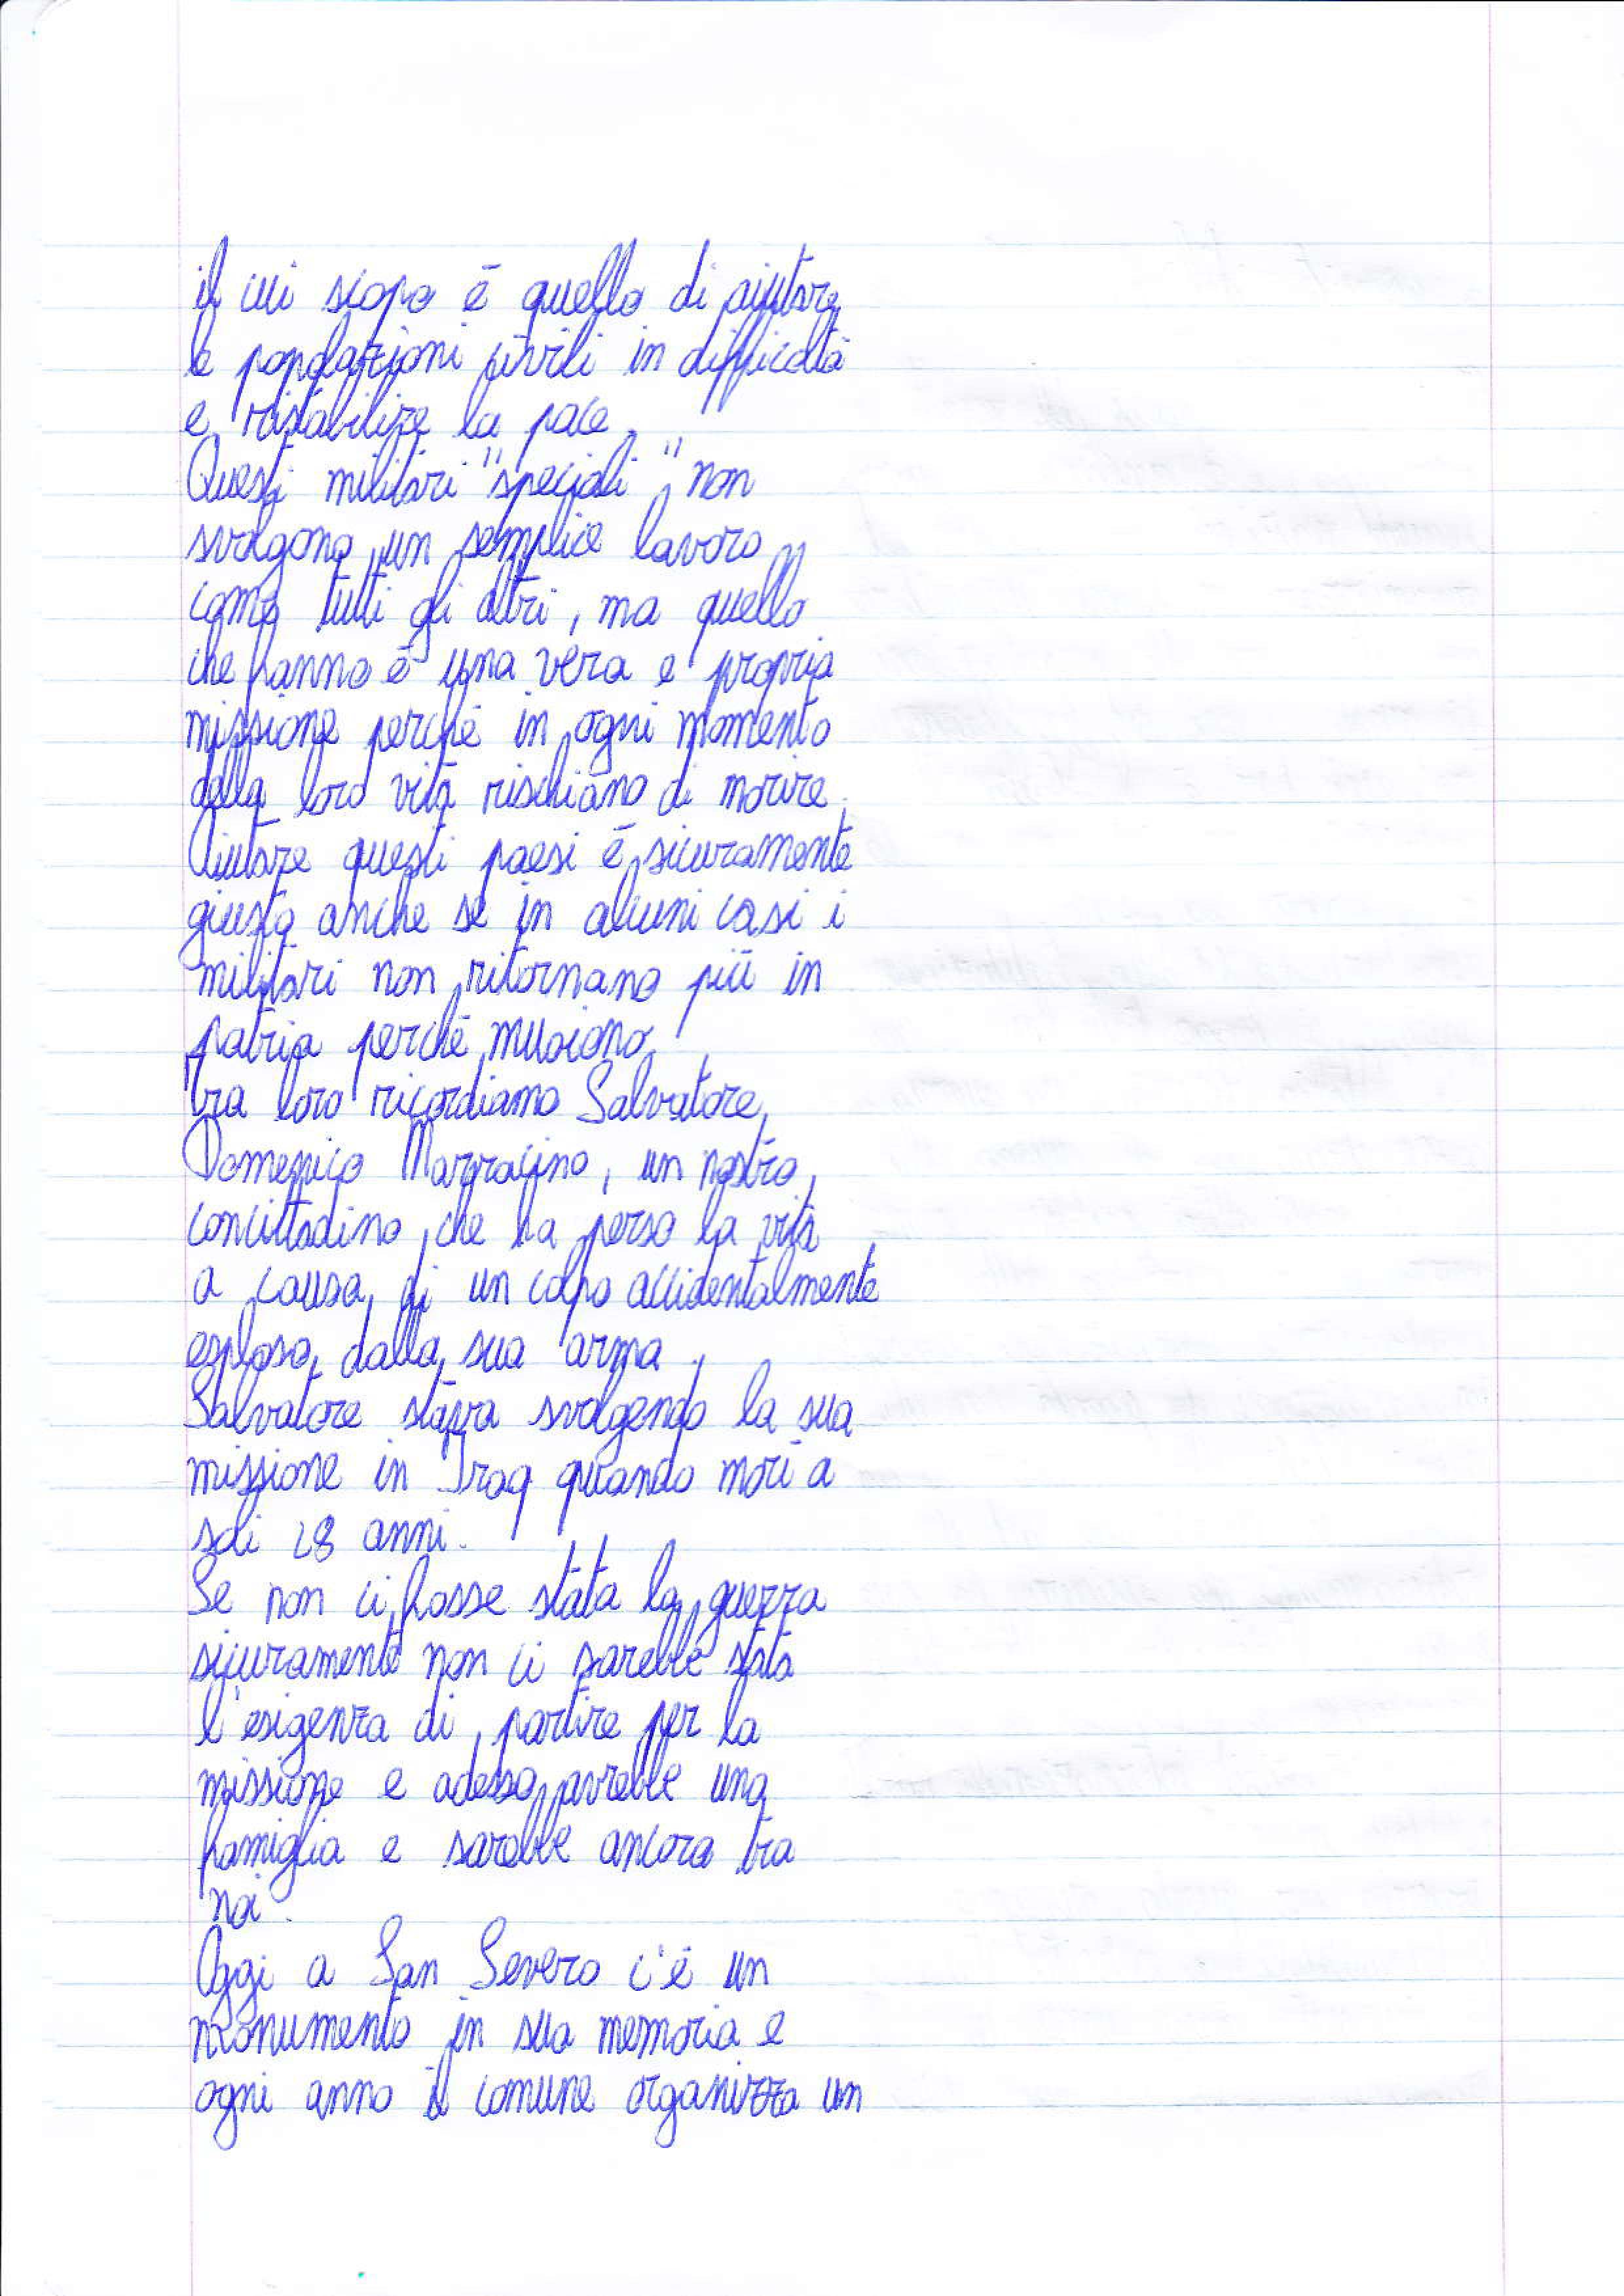 il cui scopo è quello di aiutare
le popolazioni civili in difficoltà
e ristabilire la pace.
Questi militari "speciali" non
svolgono un semplice lavoro
come tutti gli altri, ma quello
che fanno è una vera e propria
missione perché in ogni momento
della loro vita rischiano di morire.
Aiutare questi paesi è sicuramente
giusto anche se in alcuni casi i
militari non ritornano più in
patria perché muoiono.
Tra loro ricordiamo Salvatore
Domenico Marracino, un nostro
concittadino, che ha perso la vita
a causa di un colpo accidentalmente
esploso dalla sua arma.
Salvatore stava svolgendo la sua
missione in Iraq quando morì a
soli 28 anni.
Se non ci fosse stata la guerra
sicuramente non ci sarebbe stata
l'esigenza di partire per la
missione e adesso avrebbe una
famiglia e sarebbe ancora tra
noi.
Oggi a San Severo c'è un
monumento in sua memoria e
ogni anno il comune organizza un